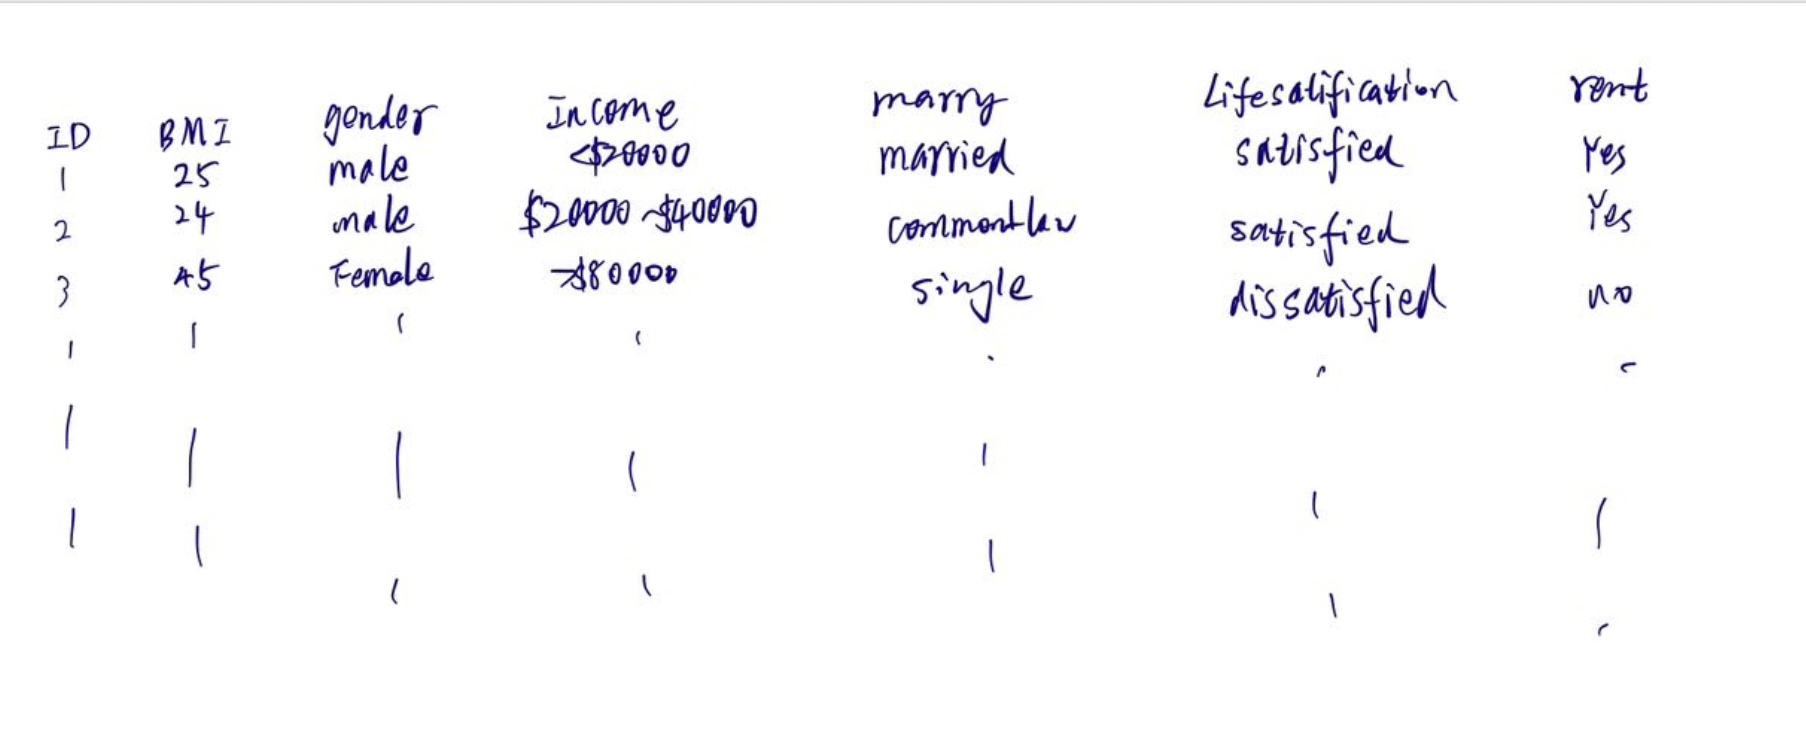 ID BMI gender Income marry Lifesatification rent
1 25 male <$20000 married satisfied Yes
2 24 male $20000 ~$40000 commontlaw satisfied Yes
3 45 Female >$80000 single dissatisfied no